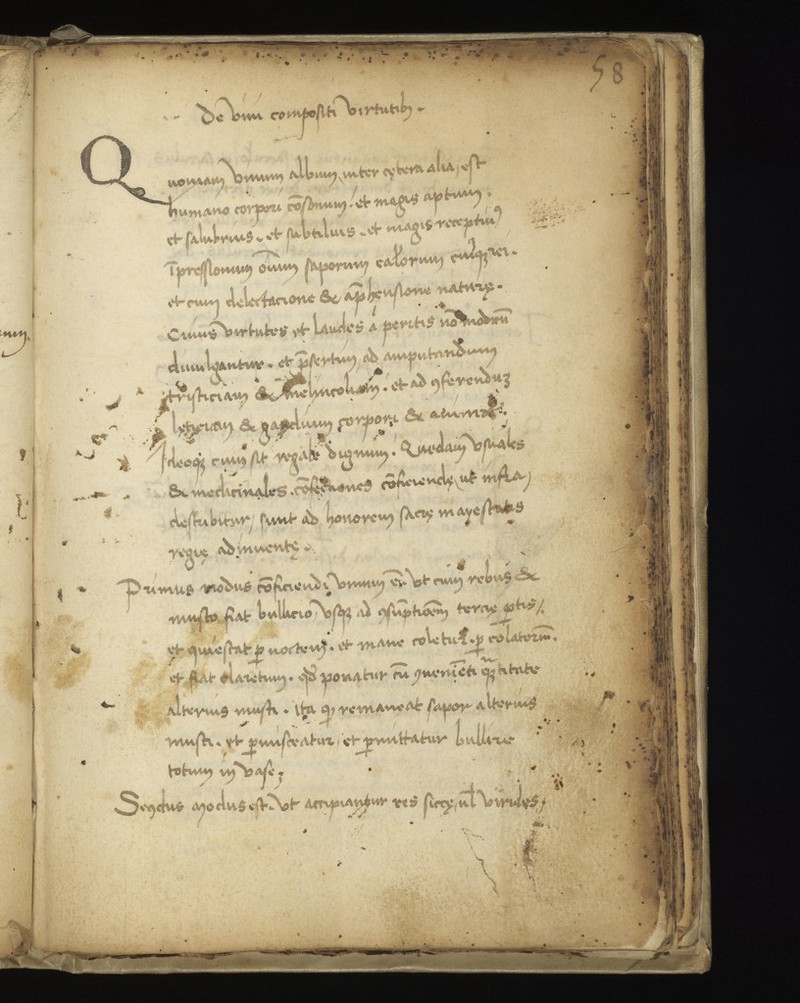 58
De vini compositi virtutibꝫ .
Quoniam vinum album inter cętera alia, est
humano corpori cōsonum . et magis aptum .
et salubrius . et subtilius . et magis receptiuꝰ
īpressionum oīum saporum calorum
et cum delectacione & naturę .
Cuius virtutes et laudes á peritis nō modicū
diuulgantur . et p̄sertim ad amputandum
tristiciam & melincoliam . et ad ꝯferenduꝫ
lęticiam & gaudium corpori & animę .
Ideoqꝫ cum sit regale dignum . Quedam vsuales
& medicinales confectiones cōficiendę, ut infra,
describitur, sunt ad honorem sacrę mayestatis
regię adinuentę .
Primus modus cōficiendi vinum ēr vt cum rebus &
musto fiat bullicio vsqꝫ ad ꝯsūptiōem tercię ꝑtis,
et quiescat ꝑ noctem . et mane coletur . ꝑ colatoriū .
et fiat claretum . ponatur cū ꝯueniēti
alterius musti . ita ꝙ remaneat sapor alterius
musti . et ꝑmisceatur, et ꝑmittatur bullire
totum in vase ;
Secūdus modus est . vt accipiantur res siccę, ul̄ virides,